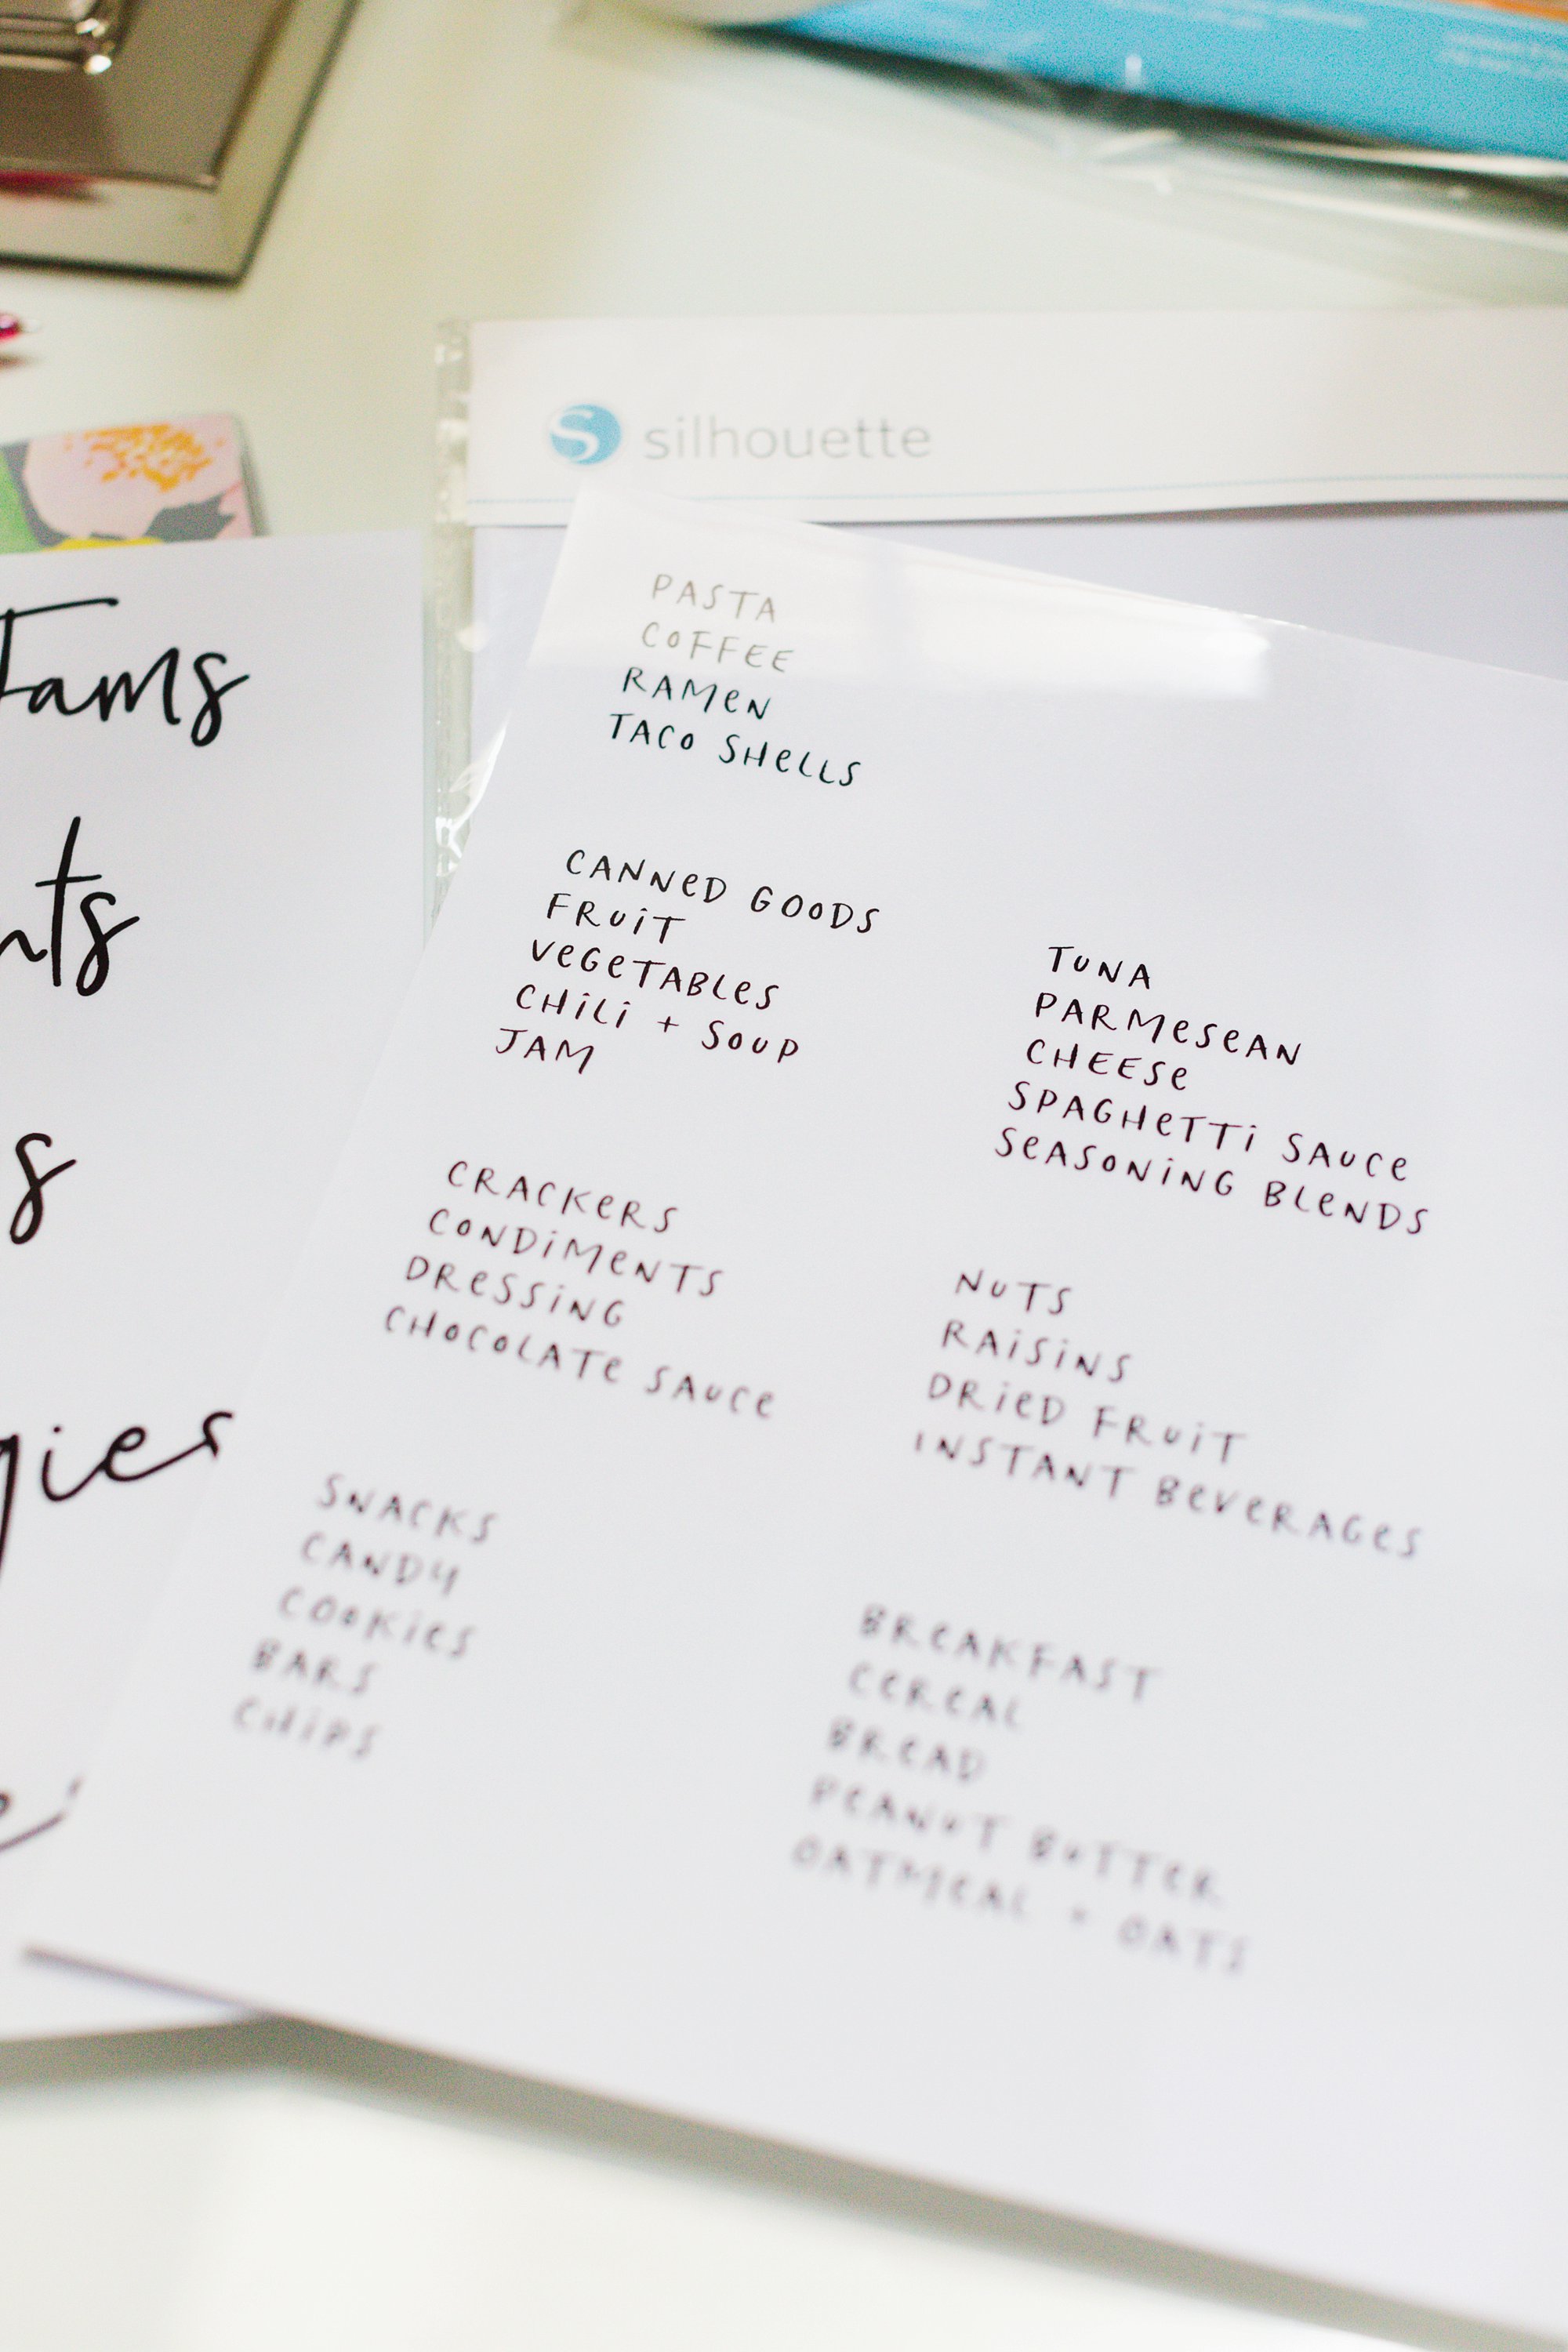 silhouette
PASTA
COFFEE
RAMEN
TACO SHELLS
CANNED GOODS
FRUIT
VEGETABLES
CHILI + SOUP
JAM
CRACKERS
CONDIMENTS
DRESSING
CHOCOLATE SAUCE
SNACKS
CANDY
COOKIES
BARS
CHIPS
TUNA
PARMESEAN
CHEESE
SPAGHETTI SAUCE
SEASONING BLENDS
NUTS
RAISINS
DRIED FRUIT
INSTANT BEVERAGES
BREAKFAST
CEREAL
BREAD
PEANUT BUTTER
OATMEAL + OATS
Jams
nts
s
gies
e